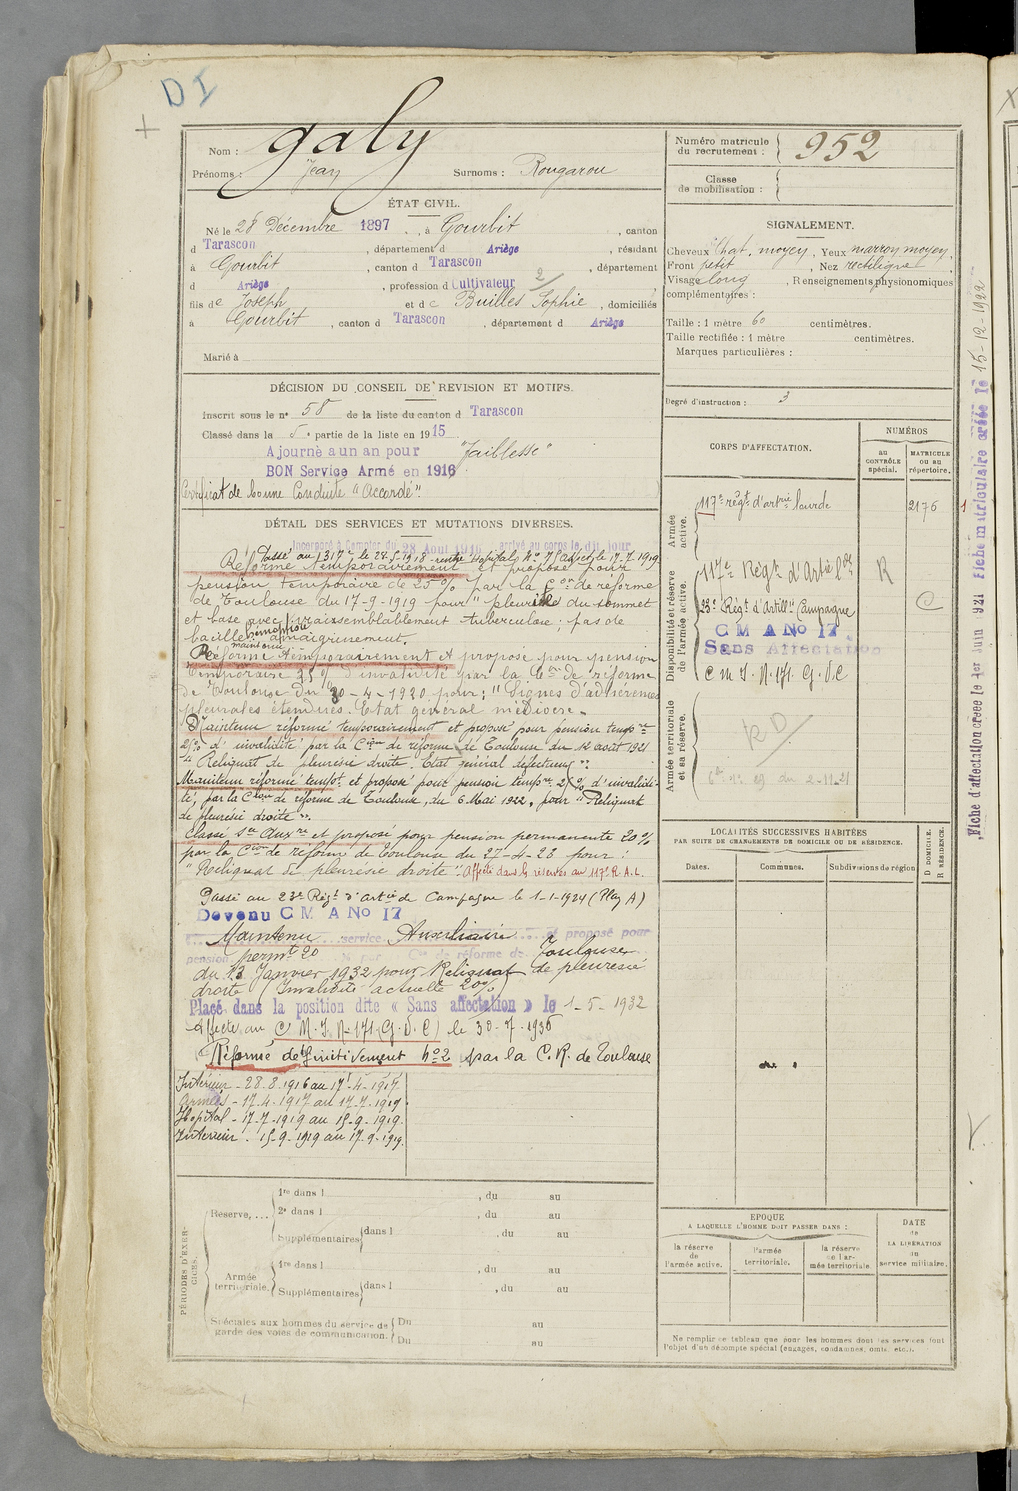 D I
Nom : Galy
Prénoms : Jean Surnoms : Rougarou
ÉTAT CIVIL.
Né le 28 Décembre 1897, à Gourbit, canton
d Tarascon, département d Ariège, résidant
à Gourbit, canton d Tarascon, département
d Ariège, profession d Cultivateur 2/
fils de Joseph et de Builles Sophie, domiciliés
à Gourbit, canton d Tarascon, département d Ariège
Marié à
DÉCISION DU CONSEIL DE REVISION ET MOTIFS.
Inscrit sous le n° 58 de la liste du canton d Tarascon
Classé dans la 5e partie de la liste en 1915
Ajourné a un an pour "Faiblesse"
BON Service Armé en 1916
Certificat de bonne Conduite "Accordé".
DÉTAIL DES SERVICES ET MUTATIONS DIVERSES.
Incorporé à Compter du 28 Août 1916 arrivé au corps le dit jour
Passé au 317e le 24-5-1918 rentré hopital n° 7 le 17-7-1919
Réformé temporairement et proposé pour
pension temporaire de 25 % par la Con de réforme
de Toulouse du 17-9-1919 pour " pleurite du sommet
et base avec vraissemblablement tuberculose ; pas de
bacilles hémoptoïe amaigrissement.
maintenu
Réformé temporairement et proposé pour pension
temporaire 25 % d'invalidité par la Con de réforme
de Toulouse du 30-4-1920 pour : "Signes d'adhérences
pleurales étendues. Etat général médiocre.
Maintenu réformé temporairement et proposé pour pension tempre
25 % d'invalidité par la Con de réforme de Toulouse du 12 août 1921
" Reliquat de pleurésie droite. Etat général défectueux ".
Maintenu réformé tempt et proposé pour pension tempre 25 % d'invalidi-
té, par la Con de réforme de Toulouse, du 6 Mai 1922, pour " Reliquat
de pleurésie droite ".
Classé Sce Auxre et proposé pour pension permanente 20 %
par la Con de réforme de Toulouse du 27-4-23 pour :
" Reliquat de pleurésie droite ". Affecté dans la réserve au 117e R.A.L.
Passé au 23e Régt d'Artie de Campagne le 1-1-1924 (Plan A)
Devenu C M A No 17
Maintenu service Auxiliaire et proposé pour
pension permte 20 % par Con de réforme de Toulouse
du 13 Janvier 1932 pour Reliquat de pleurésie
droite (Invalidité actuelle 20 %)
Placé dans la position dite « Sans affectation » le 1-5-1932
Affecté au C M. I. N° 171 (G.V.C) le 30-7-1936
Réformé définitivement N° 2 par la C. R. de Toulouse
Intérieur - 28-8-1916 au 17-4-1917
Armées - 17-4-1917 au 17-7-1919
Hopital - 17-7-1919 au 15-9-1919.
Intérieur - 15-9-1919 au 17-9-1919.
PÉRIODES D'EXERCICES
Réserve, ...
1re dans l , du au
2e dans l , du au
Supplémentaires dans l , du au
Armée territoriale.
1re dans l , du au
Supplémentaires dans l , du au
Spéciales aux hommes du service de garde des voies de communication.
Du au
Du au
Numéro matricule du recrutement : 952
Classe de mobilisation :
SIGNALEMENT.
Cheveux Chat. moyen, Yeux marron moyen,
Front petit, Nez rectiligne,
Visage long, Renseignements physionomiques
complémentaires :
Taille : 1 mètre 60 centimètres.
Taille rectifiée : 1 mètre centimètres.
Marques particulières :
Degré d'instruction : 3
CORPS D'AFFECTATION.
NUMÉROS
au CONTRÔLE spécial.
MATRICULE OU au répertoire.
Armée active.
117e régt d'artrie lourde 2176
Disponibilité et réserve de l'armée active.
117e Régt d'Artie Lde R
23e Régt d'Artilie Campagne C
C M A No 17.
Sans Affectation
C M I. N. 171. G.V.C
Armée territoriale et sa réserve.
RD/
LOCALITÉS SUCCESSIVES HABITÉES
PAR SUITE DE CHANGEMENTS DE DOMICILE OU DE RÉSIDENCE.
Dates. Communes. Subdivisions de région
D DOMICILE.
R RÉSIDENCE.
EPOQUE
A LAQUELLE L'HOMME DOIT PASSER DANS :
la réserve de l'armée active.
l'armée territoriale.
la réserve de l'armée territoriale.
DATE de LA LIBÉRATION du service militaire.
Ne remplir ce tableau que pour les hommes dont les services font
l'objet d'un décompte spécial (engagés, condamnés, omis, etc.).
Fiche d'affectation créée le 1er Juin 1921 Fiche matriculaire créée le 15-12-1922